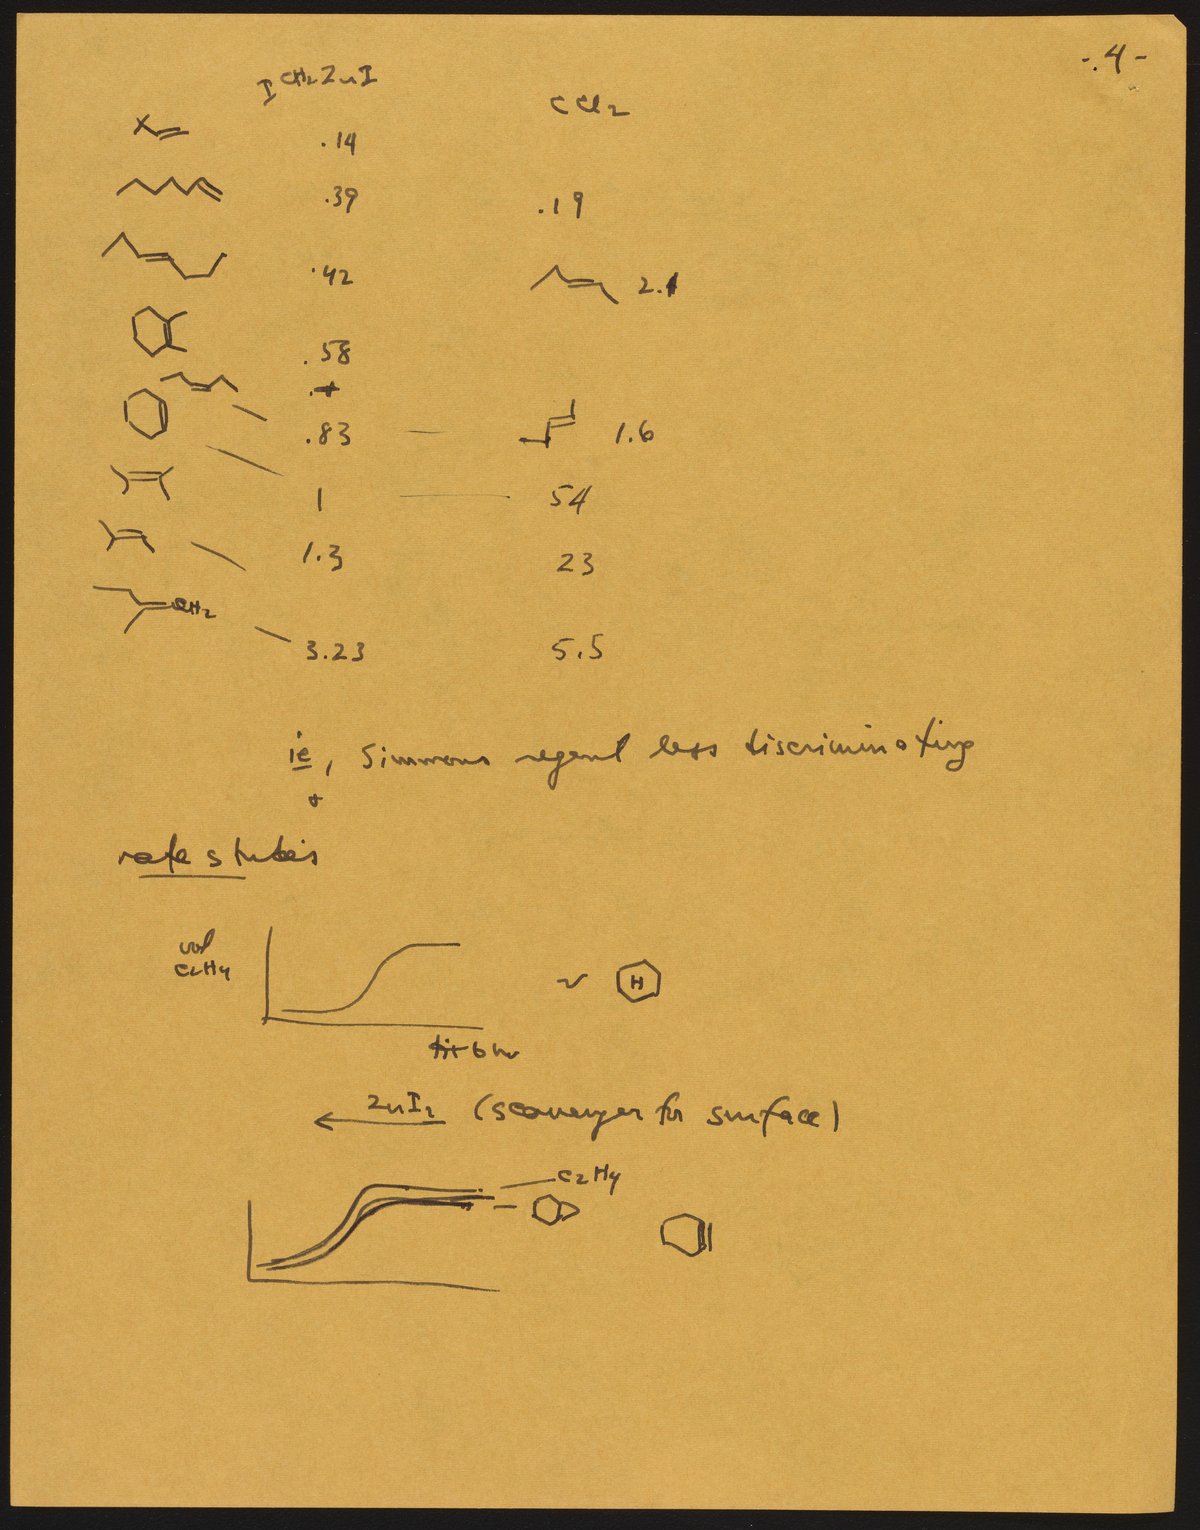 -.4-
ICH2ZnI CCl2
.14
.39 .19
.42 2.1
.58
.83 1.6
1 54
1.3 23
CH2
3.23 5.5
ie, Simmons regent less discriminating
+
rate studeis
vol
C2H4
H
6 hr
ZnI2 (scavenger for surface)
C2H4